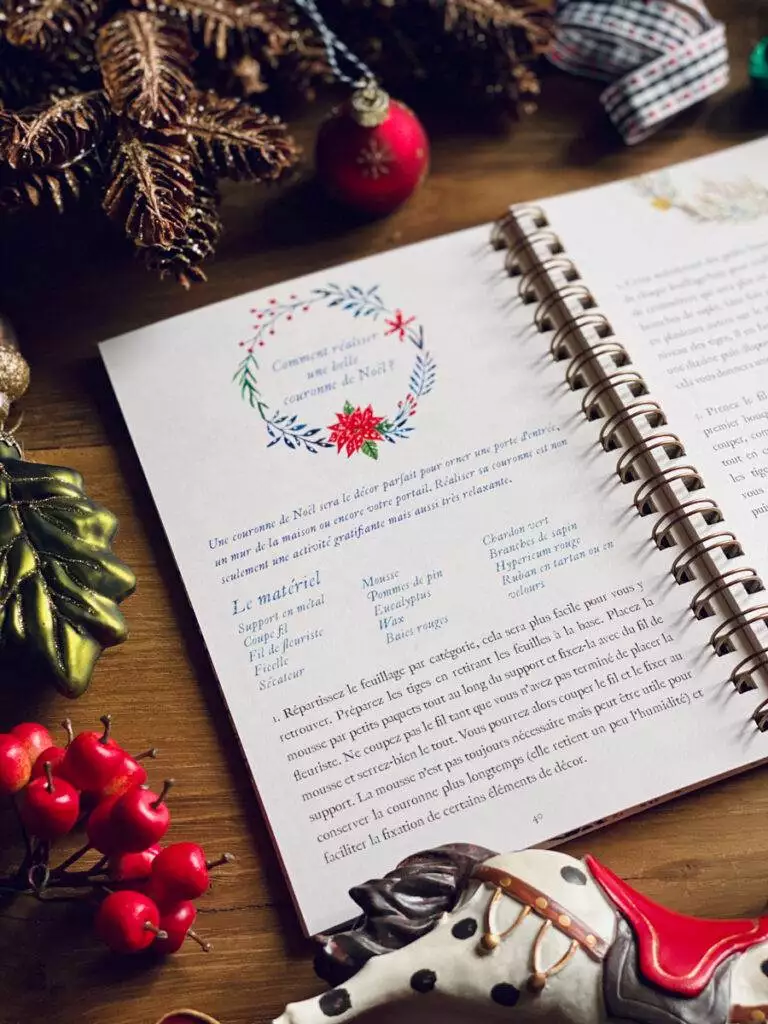 Comment réaliser
une belle
couronne de Noël ?
Une couronne de Noël sera le décor parfait pour orner une porte d'entrée,
un mur de la maison ou encore votre portail. Réaliser sa couronne est non
seulement une activité gratifiante mais aussi très relaxante.
Le matériel
Support en métal
Coupe fil
Fil de fleuriste
Ficelle
Sécateur
Mousse
Pommes de pin
Eucalyptus
Wax
Baies rouges
Chardon vert
Branches de sapin
Hypericum rouge
Ruban en tartan ou en
velours
1. Répartissez le feuillage par catégorie, cela sera plus facile pour vous y
retrouver. Préparez les tiges en retirant les feuilles à la base. Placez la
mousse par petits paquets tout au long du support et fixez-la avec du fil de
fleuriste. Ne coupez pas le fil tant que vous n'avez pas terminé de placer la
mousse et serrez-bien le tout. Vous pourrez alors couper le fil et le fixer au
support. La mousse n'est pas toujours nécessaire mais peut être utile pour
conserver la couronne plus longtemps (elle retient un peu l'humidité) et
faciliter la fixation de certains éléments de décor.
40
de chaque
branches de sapin,
en plusieurs autres sur le
niveau des tiges, il en
cela vous donnera
Prenez le fil
premier
couper,
tout en
les tiges